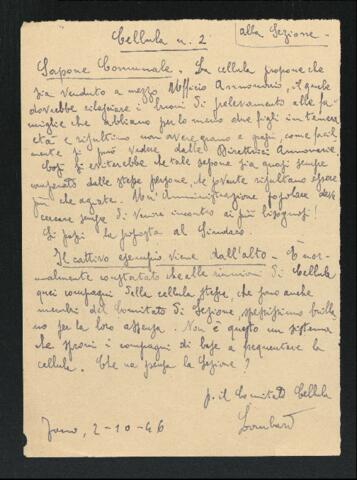 alla Sezione -
Cellula n. 2
Sapone Comunale. - La cellula propone che
sia venduto a mezzo Ufficio Annonario, il quale
dovrebbe rilasciare i buoni di prelevamento alle fa-
miglie che abbiano per lo meno due figli in tenera
età e risultino non avere grano e grassi, come facil-
mente si può vedere dalle Direttive Annonarie.
Così si eviterebbe che tale sapone sia quasi sempre
comperato dalle stesse persone, che sovente risultano essere
più che agiate. Un'Amministrazione popolare deve
cercare sempre di venire incontro ai più bisognosi!
Si passi la proposta al Sindaco.
Il cattivo esempio viene dall'alto. - È nor-
malmente constatato che alle riunioni di Cellula
quei compagni della cellula stessa, che sono anche
membri del Comitato di Sezione, spessissimo brilla-
no per la loro assenza. Non è questo un sistema
che sproni i compagni di base a frequentare la
cellula. Che ne pensa la Sezione?
p. il Comitato Cellula
Lombardi
2-10-46